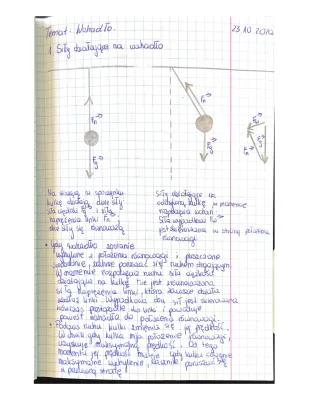 Temat: Wahadło.
23.10.2020
1. Siły działające na wahadło
Fn
Fg
Fn
Fg
Fn
Fg
Na wiszącą w spoczynku
kulkę działają dwie siły:
siła ciężkości Fg i siła
naprężenia linki Fn
dwie siły się równoważą
Siły działające na
odchyloną kulkę w momencie
rozpoczęcia wahań.
Siła wypadkowa Fw
jest skierowana w stronę położenia
równowagi
• Gdy wahadło zostanie
wychylone z położenia równowagi i
swobodnie, zacznie poruszać się ruchem drgającym.
W momencie rozpoczęcia ruchu siła ciężkości
działająca na kulkę nie jest równoważona
siłą naprężenia linki, która zawsze działa
wzdłuż linki. Wypadkowa tych sił jest skierowana
wówczas prostopadle do linki i powoduje
powrót wahadła do położenia równowagi.
• Podczas ruchu kulki zmienia się jej prędkość.
W chwili gdy kulka mija położenie równowagi,
uzyskuje maksymalną prędkość. Od tego
momentu jej prędkość maleje. Gdy kulka osiągnie
maksymalne wychylenie, zacznie poruszać się
w przeciwną stronę!